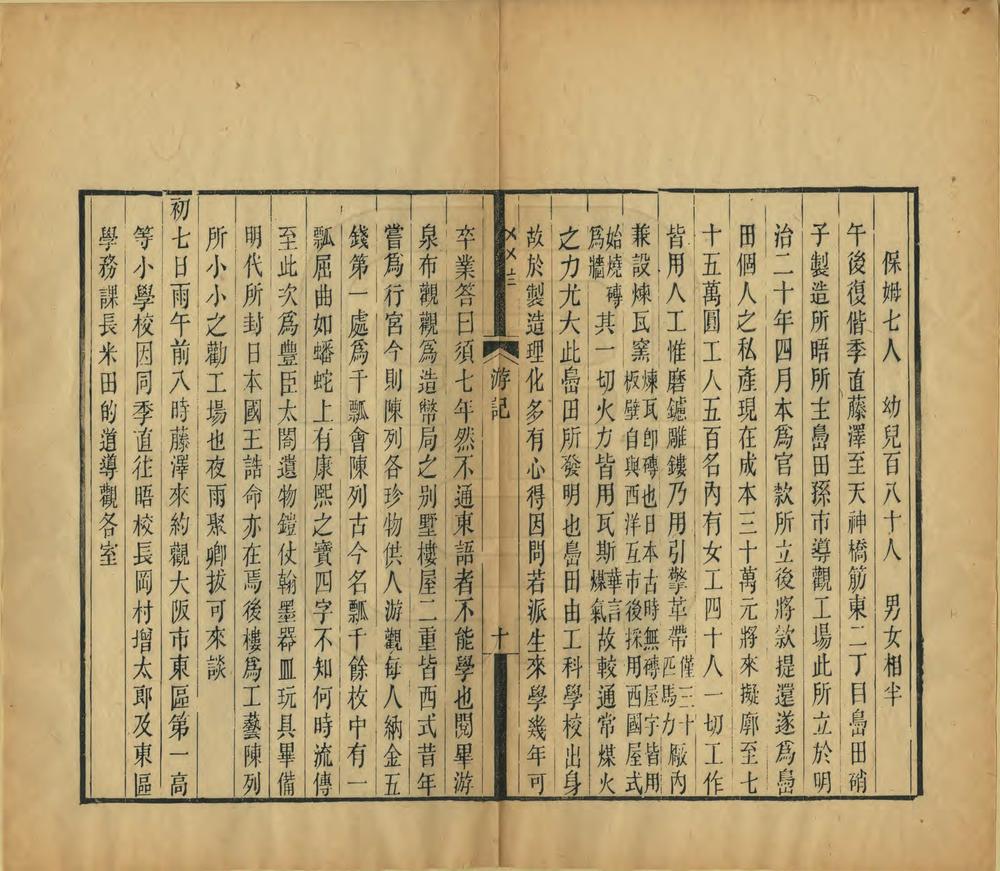 保姆七人　幼兒百八十人　男女相半
午後復偕季直藤澤至天神橋筋東二丁目島田硝
子製造所晤所主島田孫市導觀工場此所立於明
治二十年四月本爲官款所立後將款提還遂爲島
田個人之私產現在成本三十萬元將來擬廓至七
十五萬圓工人五百名內有女工四十八一切工作
皆用人工惟磨鑢雕鏤乃用引擎革帶僅三十匹馬力廠內
兼設煉瓦窰煉瓦卽磚也日本古時無磚屋字皆用板壁自與西洋互市後採用西國屋式
始燒磚爲牆其一切火力皆用瓦斯華言煤氣故較通常煤火
之力尤大此島田所發明也島田由工科學校出身
故於製造理化多有心得因問若派生來學幾年可
游記
十
卒業答曰須七年然不通東語者不能學也閱畢游
泉布觀觀爲造幣局之別墅樓屋二重皆西式昔年
嘗爲行宮今則陳列各珍物供人游觀每人納金五
錢第一處爲千瓢會陳列古今名瓢千餘枚中有一
瓢屈曲如蟠蛇上有康熙之寶四字不知何時流傳
至此次爲豐臣太閤遺物鎧仗翰墨器皿玩具畢備
明代所封日本國王誥命亦在焉後樓爲工藝陳列
所小小之勸工場也夜雨聚卿拔可來談
初七日雨午前八時藤澤來約觀大阪市東區第一高
等小學校因同季直往晤校長岡村增太郎及東區
學務課長米田的道導觀各室